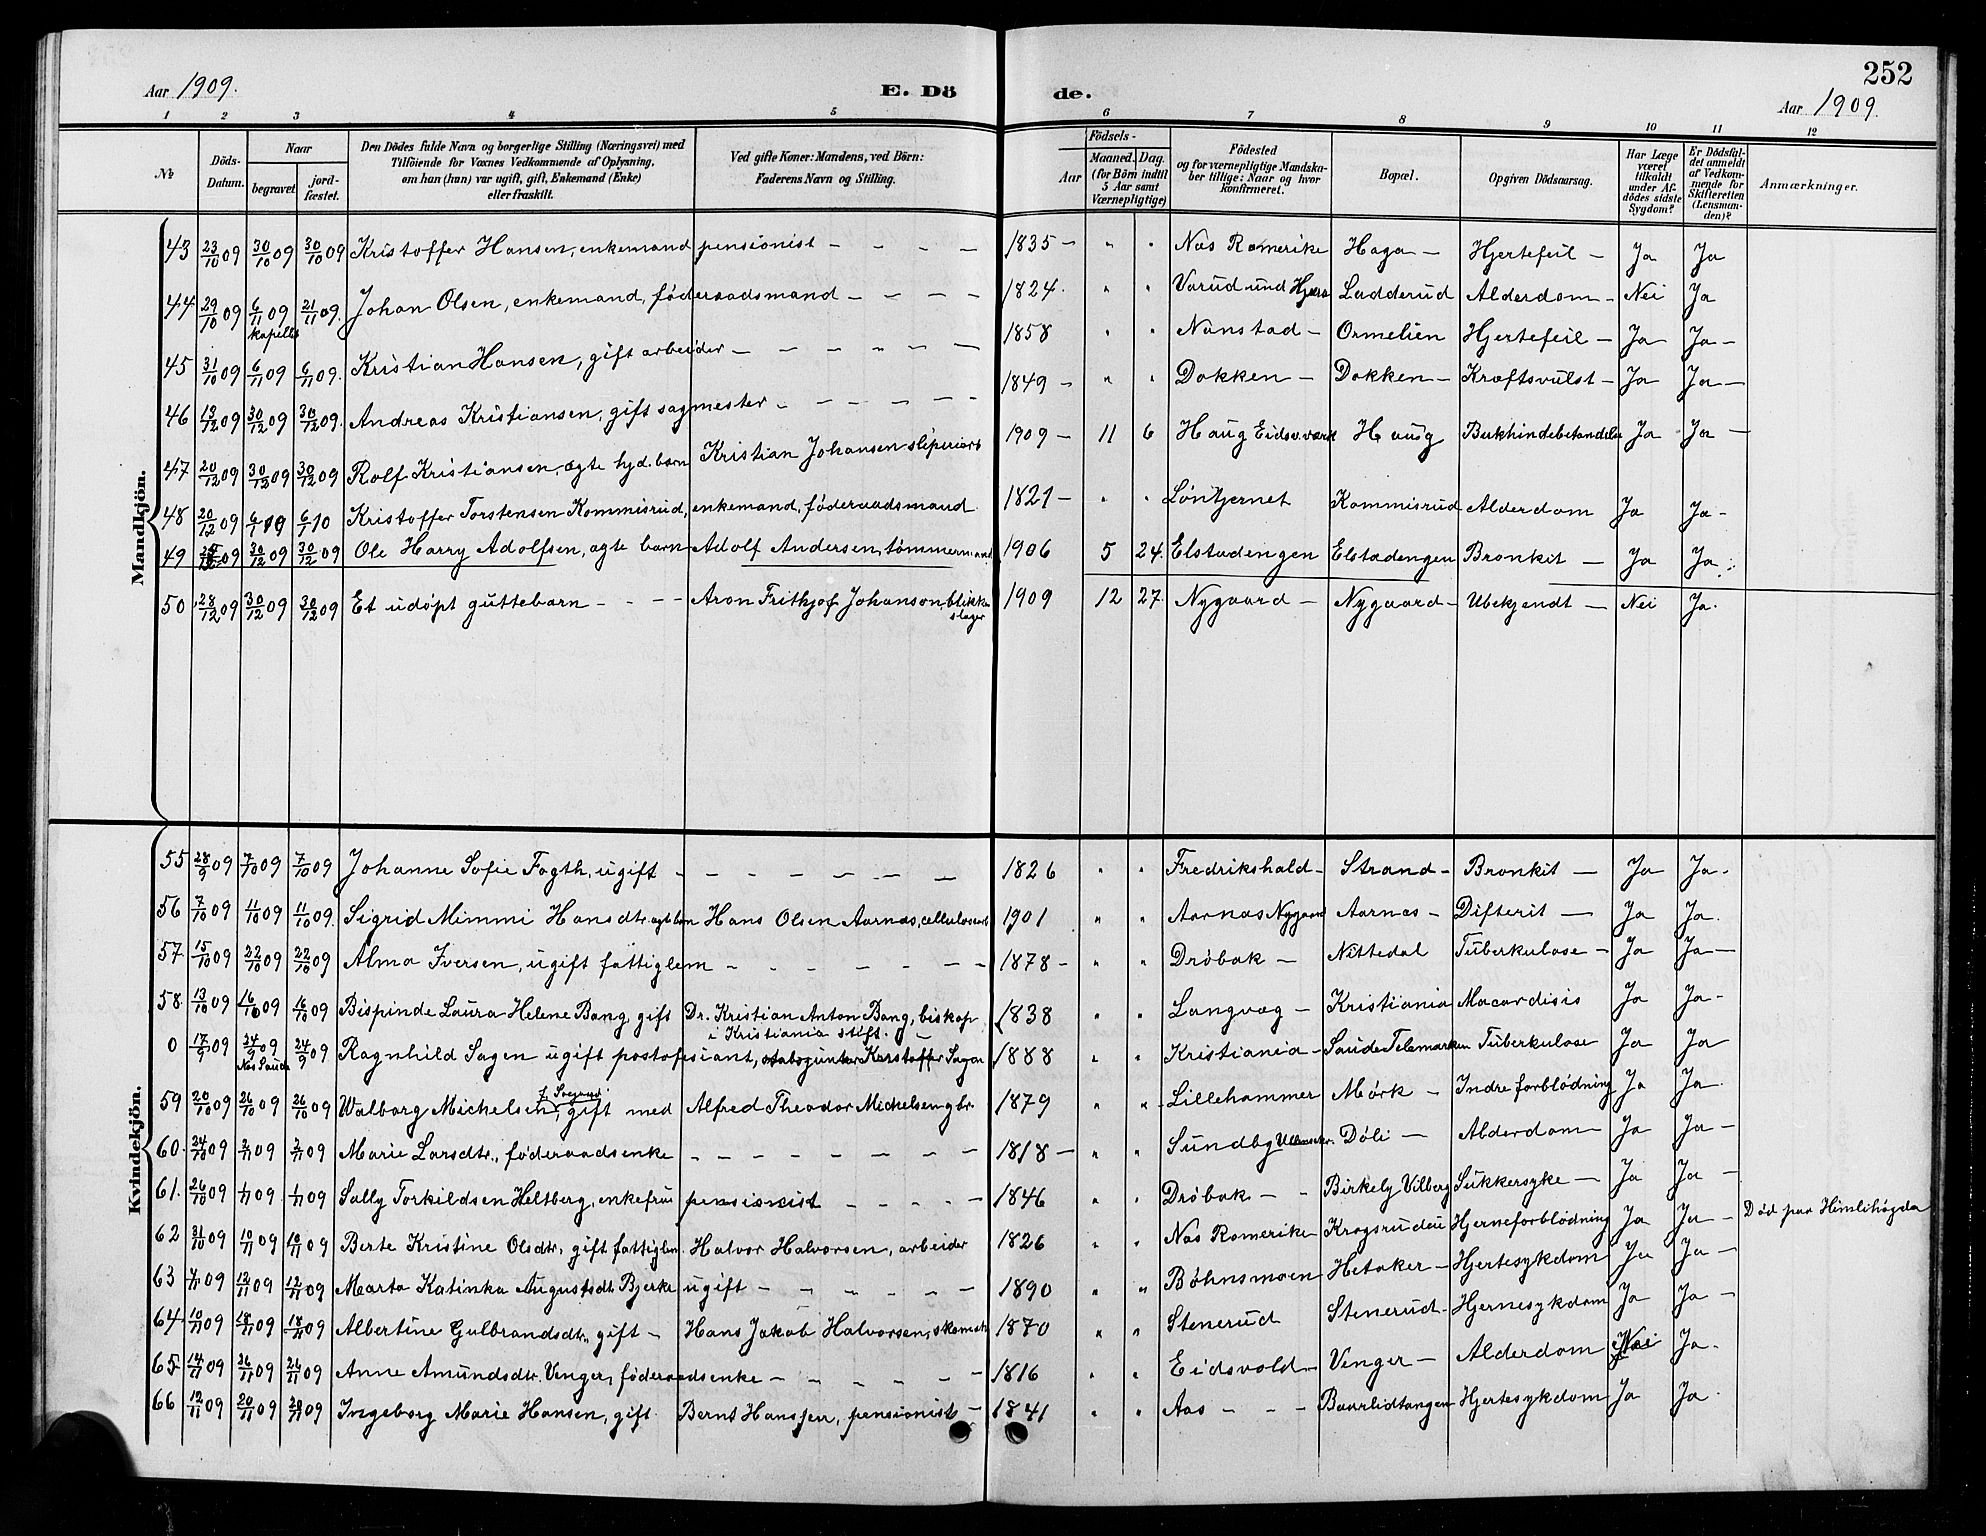 Aar 1909.
E. Dö de.
252
Aar 1909.
1 2 3 4 5 6 7 8 9 10 11 12
No
Döds-Datum.
Naar
begravet
jord-fæstet.
Den Dödes fulde Navn og borgerlige Stilling (Næringsvei) med
Tilföiende for Voxnes Vedkommende af Oplysning,
om han (hun) var ugift, gift, Enkemand (Enke)
eller fraskilt.
Ved gifte Koner: Mandens, ved Börn:
Faderens Navn og Stilling.
Födsels-
Aar
Maaned. Dag.
(for Börn indtil
5 Aar samt
Værnepligtige)
Födested
og for værnepligtige Mandska-
ber tillige: Naar og hvor
konfirmeret.
Bopæl.
Opgiven Dödsaarsag.
Har Læge
været
tilkaldt
under Af-
dödes sidste
Sygdom?
Er Dödsfal-
det anmeldt
af Vedkom-
mende for
Skifteretten
(Lensman-
den)?
Anmærkninger.
Mandkjön.
43 23/10 09 30/10 09 30/10 09 Kristoffer Hansen, enkemand pensionist - - - - 1835 - " " Nas Romerike Haga - Hjertefeil - Ja Ja
44 29/10 09 6/11 09 kapellet 21/11 09. Johan Olsen, enkemand, føderaadsmand - - - - 1824. " " Varud und Hjera Ladderud Alderdom - Nei Ja
45 31/10 09 6/11 09 6/11 09. Kristian Hansen, gift arbeider - - - - - - 1858 " " Nanstad - Ormelien Hjertefeil - Ja Ja -
46 19/12 09 30/12 09 30/12 09. Andreas Kristiansen, gift sagmester - - - - - - 1849 - " " Dokken - Dokken - Kræftsvulst - Ja Ja -
47 20/12 09 30/12 09 30/12 09 Rolf Kristiansen, ægte hjd. barn Kristian Johansen sliperiarb 1909 - 11 6 Haug Eidsv.værk Haug Bukhindebetændelse Ja Ja -
48 20/12 09 6/1 10 6/1 10 Kristoffer Torstensen Kommisrud, enkemand, føderaadsmand 1821 - " " Løntjernet Kommisrud Alderdom Ja Ja -
49 09 30/12 09 30/12 09 Ole Harry Adolfsen, ægte barn - Adolf Andersen, tømmermand 1906 5 24. Elstadengen Elstadengen Bronkit - Ja Ja.
50 28/12 09 30/12 09 30/12 09 Et udøpt guttebarn - - - - Aron Frithjof Johanson, blikken slager 1909 12 27. Nygaard - Nygaard - Ubekjendt - Nei Ja.
Kvindekjön.
55 28/9 09 7/10 09 7/10 09 Johanne Sofie Fagth, ugift - - - - - - - 1826 " " Fredrikshald - Strand - Bronkit - Ja Ja -
56 7/10 09 11/10 09 11/10 09. Sigrid Mimmi Hansdtr. ægte bn Hans Olsen Aarnæs, cellulosearb 1901 " " Aarnæs Nygaard Aarnæs - Difterit - Ja Ja.
57 15/10 09 22/10 09 22/10 09 Alma Iversen, ugift fattiglem - - - - - - 1878 - " " Drøbak - Nittedal Tuberkulose - Ja Ja -
58 13/10 09 16/10 09 16/10 09 Bispinde Laura Helene Bang, gift Dr. Kristian Anton Bang, biskop i Kristiania stift. 1838 " " Langvæg - Kristiania Macardisis Ja Ja -
0 17/9 09 24/9 09 24/9 09 Ragnhild Sagen ugift postofisiant, Kristoffer Sagen 1888 " " Kristiania - Saude Telemarken Tuberkulose Ja Ja
59 20/10 09 26/10 09 26/10 09 Walborg Michelsen, gift med Alfred Theodor Michelsen gbr. 1879 " " Lillehammer Mørk - Indre forblødning Ja Ja.
60. 24/10 09 2/11 09 2/11 09 Marie Larsdtr., føderaadsenke - - - - - - - 1818 - " " Sundby Ullensaker. Døli - Alderdom - Ja Ja -
61. 26/10 09 1/11 09 1/11 09 Sally Torkildsen Heltberg, enkefrue pensionist - - - - 1846 " " Drøbak - - Birkely Vilberg Sukkersyke - Ja Ja -
62 31/10 09 10/11 09 10/11 09 Berte Kristine Olsdtr, gift fattiglem. Halvor Halvorsen, arbeider 1826 " " Nas Romerike Krogsrudeie Hjerneforblødning Ja Ja - Død paa Himlihøgda
63 09 12/11 09 12/11 09 Marta Katinka Augustsdtr. Bjerke ugift - - - - - - 1890 " " Bøhnsmoen Hetaker - Hjertesykdom Ja Ja -
64. 10/11 09 18/11 09 18/11 09 Albertine Gulbrandsdtr., gift - Hans Jakob Halvorsen, skomak 1870 " " Stenerud Stenerud - Hjernesykdom Ja Ja -
65 14/11 09 26/11 09 26/11 09 Anne Amundsdtr. Venger, føderaadsenke - - - - - - 1816 " " Eidsvold - Venger - Alderdom Nei Ja.
66 12/11 09 20/11 09 20/11 09 Ingeborg Marie Hansen, gift. Bernt Hans, pensionist - 1841 " " Aas - - - Baarlidtangen Hjertesykdom Ja Ja.